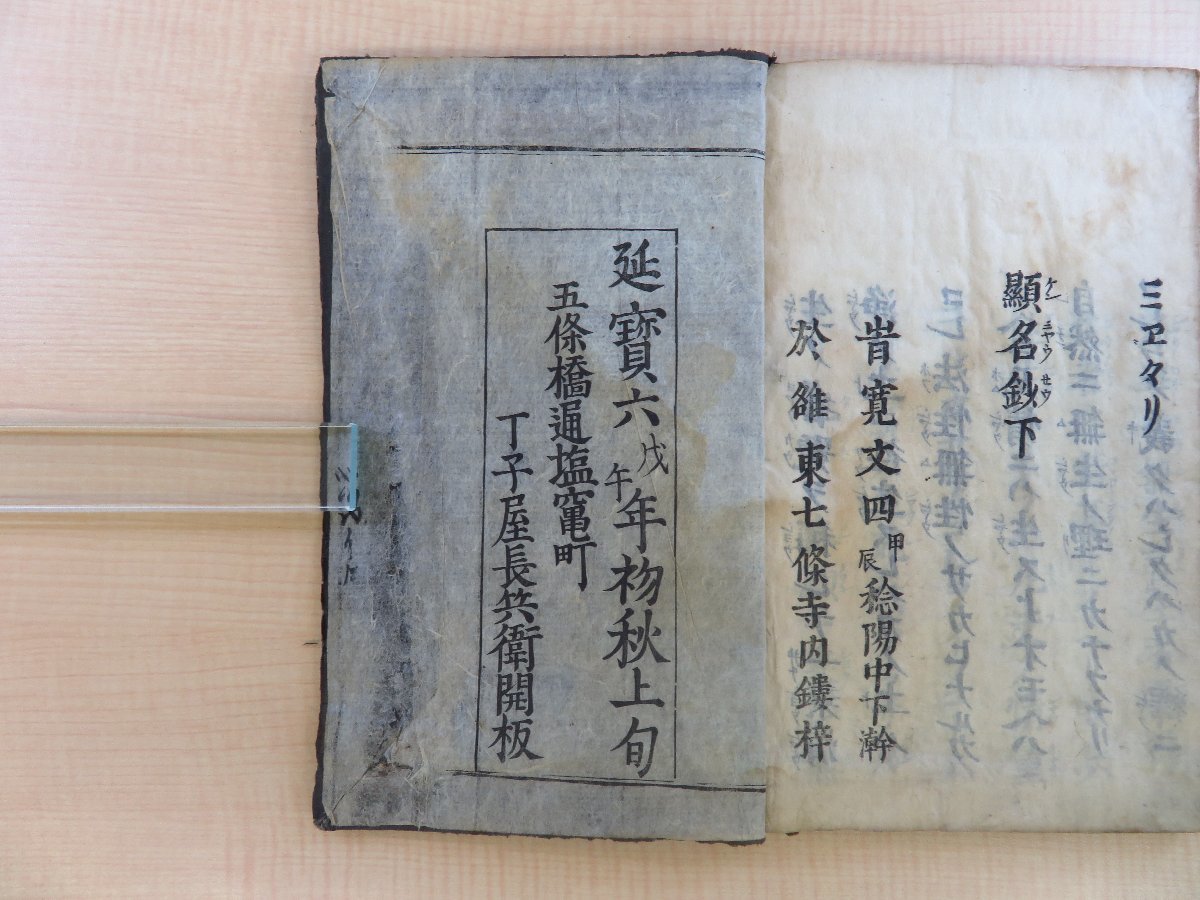 ミヱタリ
顯名鈔下
ケン ミヤウ セウ
旹寛文四甲辰稔陽中下澣
於雒東七條寺内鏤梓
延寶六戊午年初秋上旬
五條橋通塩竃町
丁子屋長兵衛開板